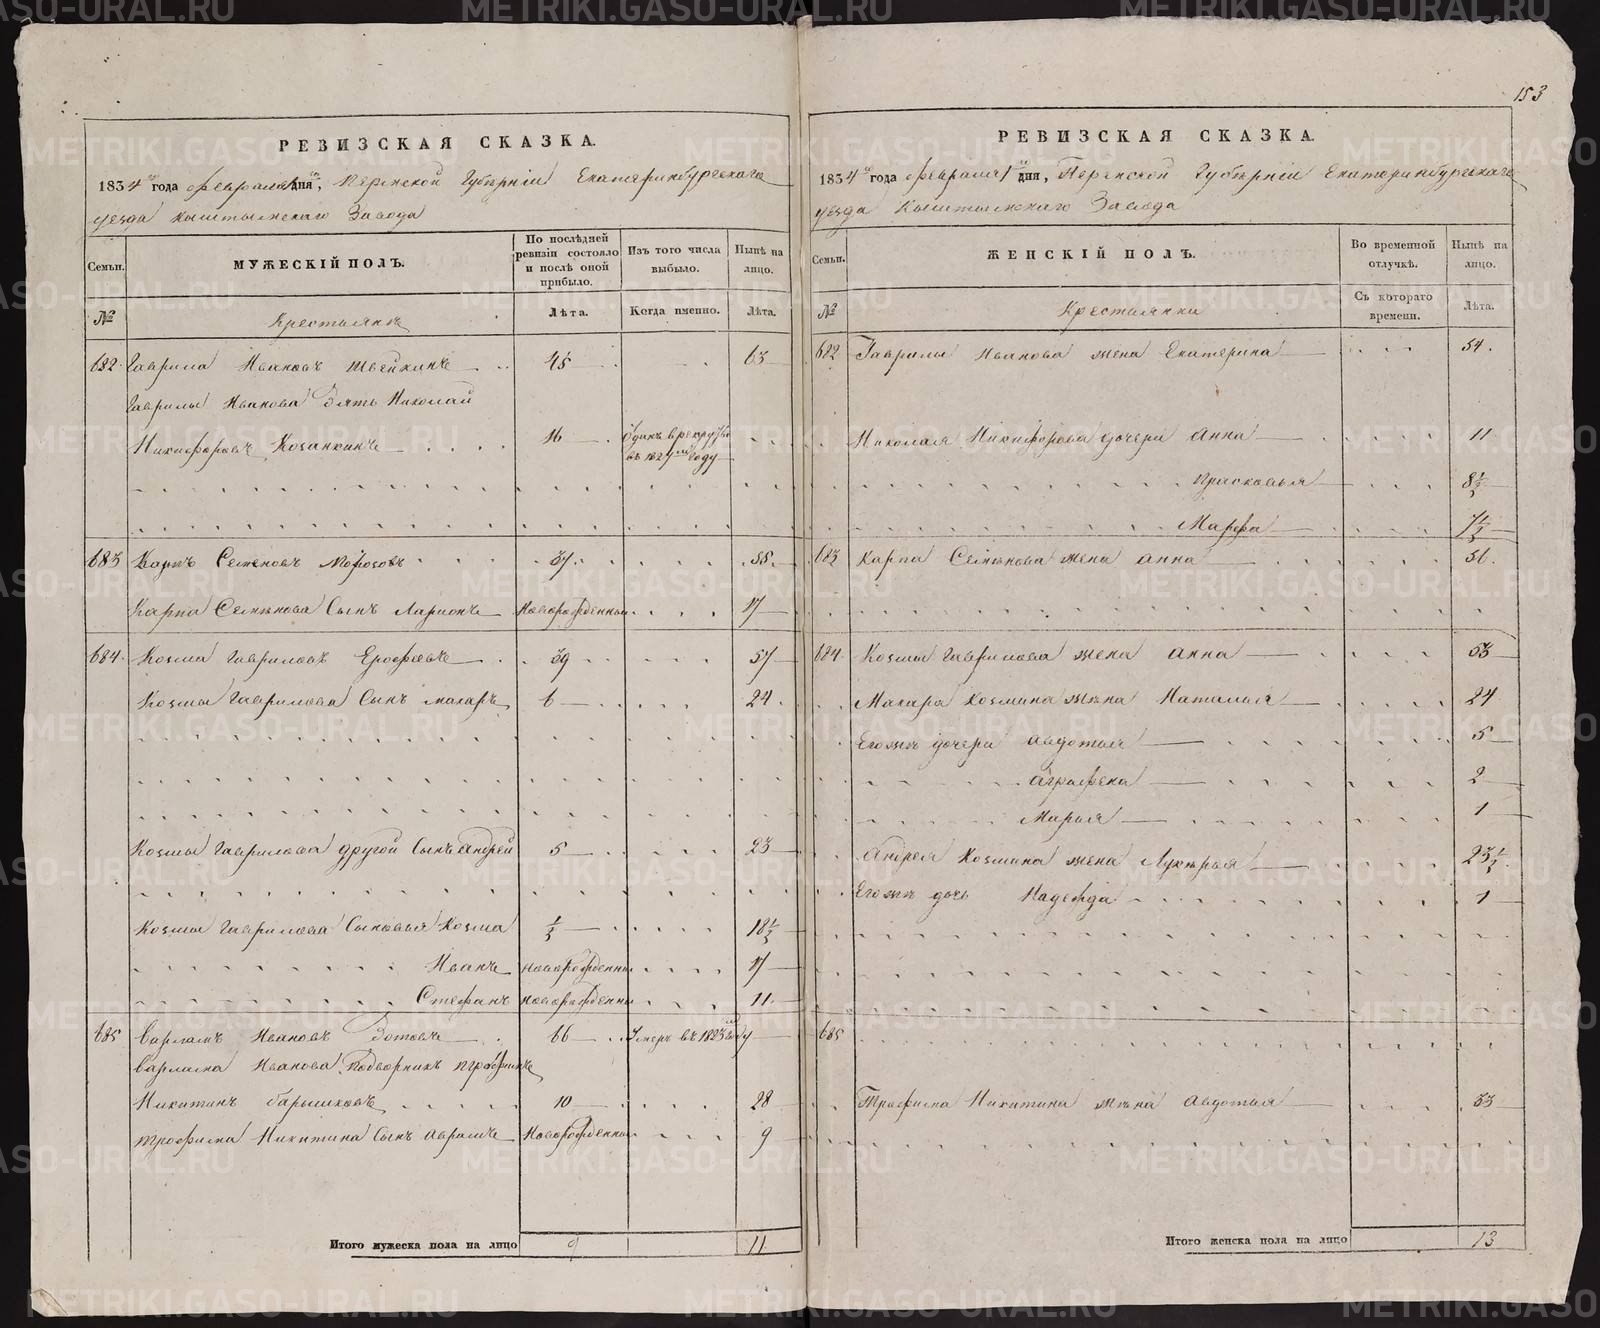 153
РЕВИЗСКАЯ СКАЗКА.
1834го года февраля дня, Пермской Губерніи Екатеринбургскаго
уезда Кыштымскаго Завода
Семьи. МУЖЕСКІЙ ПОЛЪ. По послѣдней ревизіи состояло и послѣ оной прибыло. Изъ того числа выбыло. Нынѣ на лицо.
№ Крестьянъ Лѣта. Когда именно. Лѣта.
682. Гаврила Ивановъ 45 63
Гаврилы Иванова Зять Николай
Никифоровъ Козанкинъ 16 Оданъ в рекруты въ 1827м году
683 Карпъ Семеновъ Морозовъ 37. 55.
Карпа Семенова Сынъ Ларионъ Новорожденный 17
684. Козма Гавриловъ Ерофѣевъ 39 57
Козмы Гаврилова Сынъ Макаръ 6 24.
Козмы Гаврилова другой Сынъ Андрей 5 23
Козмы Гаврилова Сыновья Козма ½ 18½
Иванъ новорожденны 17
Степанъ новорожденны 11.
685 Варламъ Ивановъ Зотовъ 66 Умеръ въ 1823 году
Варлама Иванова Подворникъ Трофимъ
Никитинъ Барышховъ 10 28
Трофима Никитина Сынъ Аврамъ Новорожденны 9
Итого мужеска пола на лицо 9 11
РЕВИЗСКАЯ СКАЗКА.
1834го года февраля 1 дня, Пермской Губерніи Екатеринбургскаго
уезда Кыштымскаго Завода
Семьи. ЖЕНСКІЙ ПОЛЪ. Во временной отлучкѣ. Нынѣ на лицо.
№ Крестьянки Съ котораго времени. Лѣта.
682 Гаврилы Иванова жена Екатерина 54.
Николая Никифорова дочери Анна 11
Прасковья 8½
Марфа 7½
683 Карпа Семенова жена Анна 56.
684. Козмы Гаврилова жена Анна 53
Макара Козмина жена Наталья 24
Егожъ дочери Авдотья 5
Аграфена 2
Марья 1
Андрея Козмина жена Лукерья 23½
Егожъ дочь Надежда 1
685
Трофима Никитина жена Авдотья 33
Итого женска пола на лицо 13
METRIKI.GASO-URAL.RU